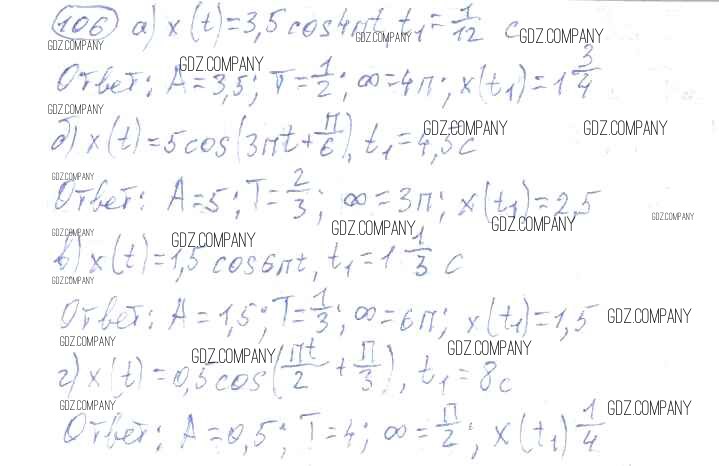 106 а) x(t)=3,5 cos4πt, t₁=1/12 c GDZ.COMPANY GDZ.COMPANY GDZ.COMPANY
Ответ: A=3,5; T=1/2; ∞=4π; x(t₁)=1 3/4 GDZ.COMPANY
GDZ.COMPANY
б) x(t)=5cos(3πt+π/6), t₁=4,5c GDZ.COMPANY GDZ.COMPANY
GDZ.COMPANY
Ответ: A=5; T=2/3; ∞=3π; x(t₁)=2,5 GDZ.COMPANY GDZ.COMPANY
GDZ.COMPANY GDZ.COMPANY GDZ.COMPANY
в) x(t)=1,5 cos6πt, t₁=1 1/3 c
GDZ.COMPANY
Ответ: A=1,5; T=1/3; ∞=6π; x(t₁)=1,5 GDZ.COMPANY
GDZ.COMPANY GDZ.COMPANY GDZ.COMPANY
г) x(t)=0,5cos(πt/2+π/3), t₁=8c
GDZ.COMPANY GDZ.COMPANY
Ответ: A=0,5; T=4; ∞=π/2; x(t₁) 1/4